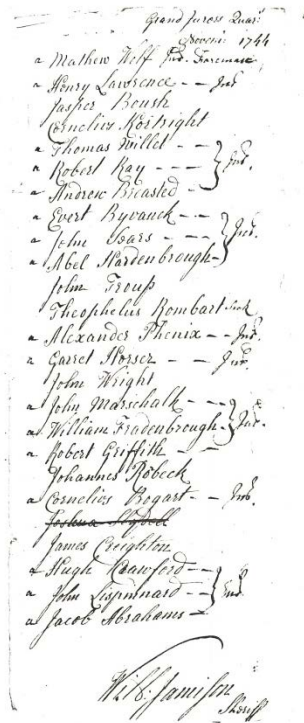 Grand Jurors Quar:
1744
a Mathew Wolf Jur. Foreman
a Henry Lawrence - Jur
Jasper Bush
Cornelius Kortright
a Thomas Willet - -
a Robert Ray - - - Jur.
a Andrew Breasted -
a Evert Byvanck - -
a John Sears - - - Jur.
a Abel Hardenbrough -
John Troup
Theophelus Rombart Sick
a Alexander Phenix - - Jur.
a Garret Horser - - Jur.
John Wright
a John Marschalk - - -
a William Fradenbrough - Jur.
a Robert Griffith - -
Johannes Robeck
a Cornelius Bogart - - Jur.
Joshua Slydell
James Creighton
a Hugh Crawford - -
a John Lispinnard - - Jur
a Jacob Abrahams -
Will: Jamison
Sheriff